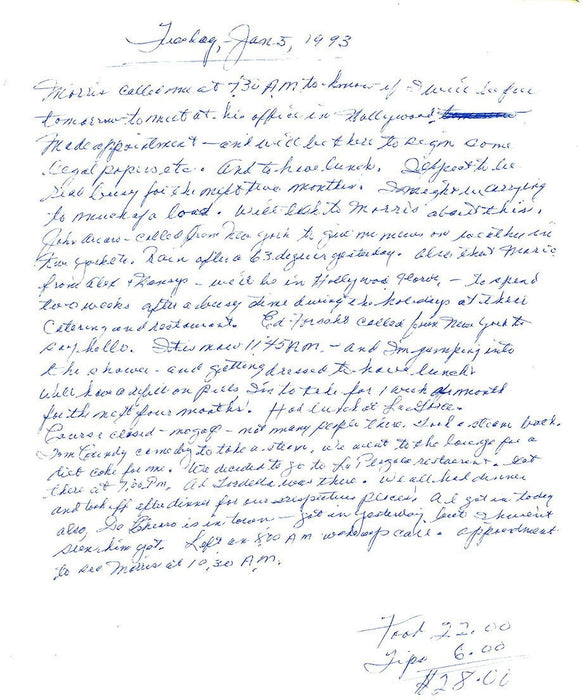 Tuesday, Jan 5, 1993
Morris called me at 7:30 A.M. to know if I will be free
tomorrow to meet at his office in Hollywood
Made appointment - and will be there to sign some
legal papers, etc. And to have lunch. I expect to be
real busy for the next two months. I might be carrying
to much of a load. Will talk to Morris about this.
John called from New York to give me news on weather in
New York. Rain after a 63 degree yesterday. Also that Marie
from Alex & Henrys - will be in Hollywood, - to spend
two weeks after a busy time during the holidays at their
Catering and restaurant. Ed called from New York to
say hello. It is now 11:45 A.M. - and I'm jumping into
the shower - and getting dressed to have lunch.
Will have a refill on pills I'm to take for 1 week of month
for the next four months. Had lunch at
Course closed - no gas - not many people there. Took a steam bath.
Tom came by to take a steam, we went to the lounge for a
diet coke for me. We decided to go to restaurant. Got
there at 7:00 P.M. Ad was there. We all had dinner
and took off after dinner for our respective places. Al got in today
also, is in town - got in yesterday, but I haven't
seen him yet. Left an 8:00 A.M. wake up call. appointment
to see Morris at 10:30 A.M.
Food 22.00
Tips 6.00
$28.00